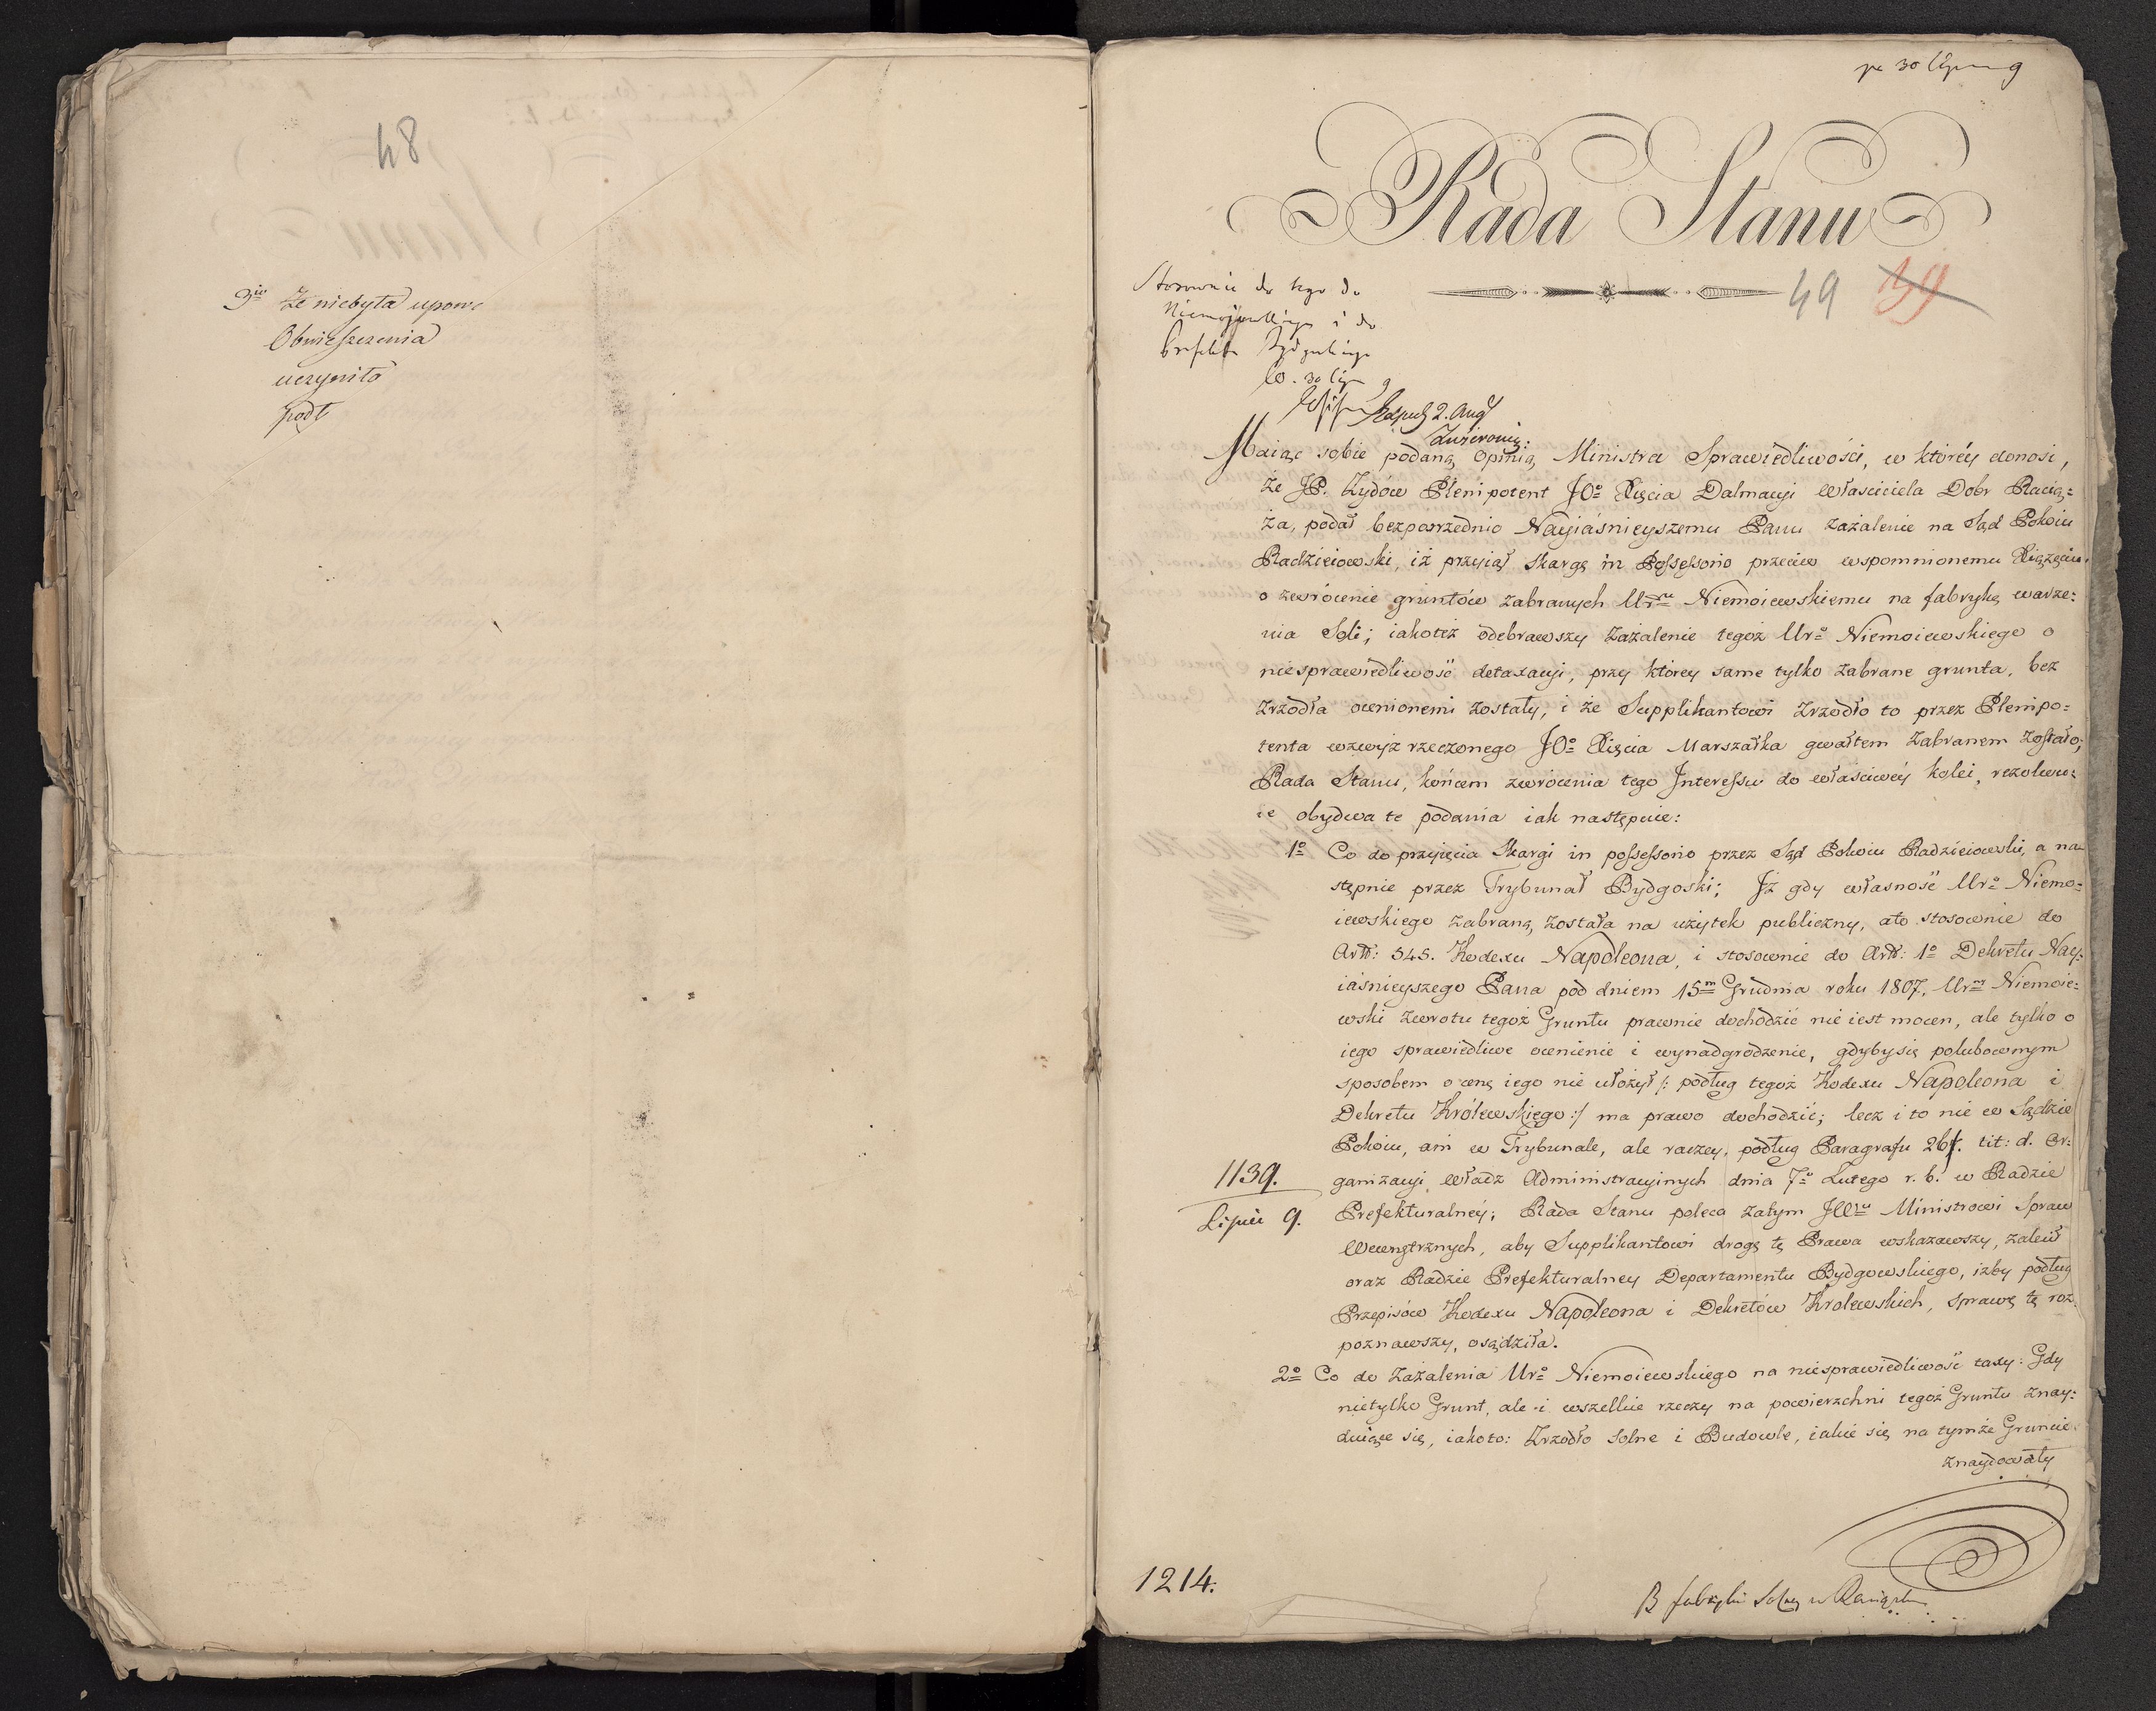 48
3io Że niebyła upowa
Obwieszczenia
uczyniła
podł
30 lipca 9
Rada Stanu
49 39
Stosownie do tego do
Niemojewskiego i do
Prefekta Bydgoskiego
30 lip 9
Exped 2. Aug
Maiąc sobie podaną Opinią Ministra Sprawiedliwości, w któréy donosi,
że JP. Zydów Plenipotent JOo Xięcia Dalmacyi Właściciela Dobr Racią=
ża, podał bezposrzednio Nayiaśnieyszemu Panu zażalenie na Sąd Pokoiu
Radzieiowski, iż przyiął Skargę in Possessorio przeciw wspomnionemu Xiążęciu
o zwrócenie gruntów zabranych Urmu Niemoiewskiemu na fabrykę warze=
nia Soli; iakoteż odebrawszy Zażalenie tegoż Uro Niemoiewskiego o
niesprawiedliwość detaxacyi, przy którey same tylko zabrane grunta, bez
Zrzodła ocenionemi zostały, i że Supplikantowi Zrzodło to przez Plenipo=
tenta wzwyż rzeczonego JOo Xięcia Marszałka gwałtem zabranem zostało;
Rada Stanu, końcem zwrócenia tego Interessu do właściwéy kolei, rezolwu=
ie obydwa te podania iak następuie:
1o Co do przyięcia Skargi in possessorio przez Sąd Pokoiu Radzieiowski, a na=
stępnie przez Trybunał Bydgoski; Iż gdy własność Uro Niemo=
iewskiego zabraną została na użytek publiczny, a to stosownie do
Artł: 545. Kodexu Napoleona, i stosownie do Artł: 1o Dekretu Nay=
iaśnieyszego Pana pod dniem 15m Grudnia roku 1807, Urny Niemoie=
wski zwrotu tegoż Gruntu prawnie dochodzić nie iest mocen, ale tylko o
iego sprawiedliwe ocenienie i wynadgrodzenie, gdyby się polubownym
sposobem o cenę iego nie ułożył /: podług tegoż Kodexu Napoleona i
Dekretu Królewskiego :/ ma prawo dochodzić; lecz i to nie w Sądzie
Pokoiu, ani w Trybunale, ale raczey, podług Paragrafu 26. tit: d. Or=
1139.
ganizacyi Władz Administracyinych dnia 7o Lutego r. b. w Radzie
Lipiec 9.
Prefekturalnéy; Rada Stanu poleca zatym JWmu Ministrowi Spraw
Wewnętrznych, aby Supplikantowi drogę tę Prawa wskazawszy, zalecił
oraz Radzie Prefekturalney Departamentu Bydgowskiego, iżby podług
Przepisów Kodexu Napoleona i Dekretów Krolewskich, sprawę tę roz=
poznawszy, osądziła.
2o Co do Zażalenia Uro Niemoiewskiego na niesprawiedliwość taxy: Gdy
nietylko Grunt, ale i wszelkie rzeczy na powierzchni tegoż Gruntu znay=
duiące się, iakoto: Zrzodło Solne i Budowle, iakie się na tymże Gruncie
znaydowały
1214.
B fabryki Solney w Raciążku